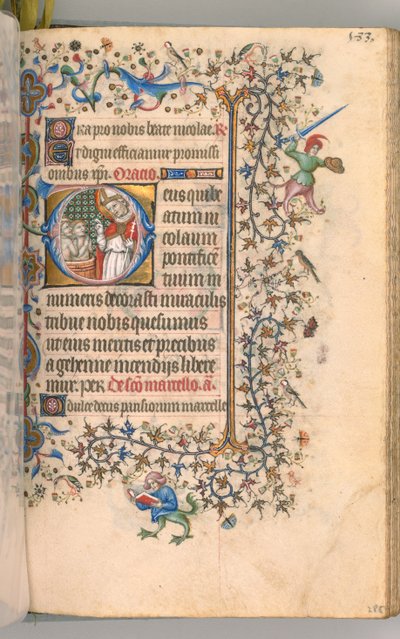 133.
Ora pro nobis beate nicolae. R.
Et digni efficiamur promissi
onibus xpi. Oratio.
Deus qui be
atum ni
colaum
pontifice
tuum in
numeris decorasti miraculis
tribue nobis quesumus
ut eius meritis et precibus
a gehenne incendijs libere
mur. per De sco marcello. a.
O dulce decus parisiorum marcelle